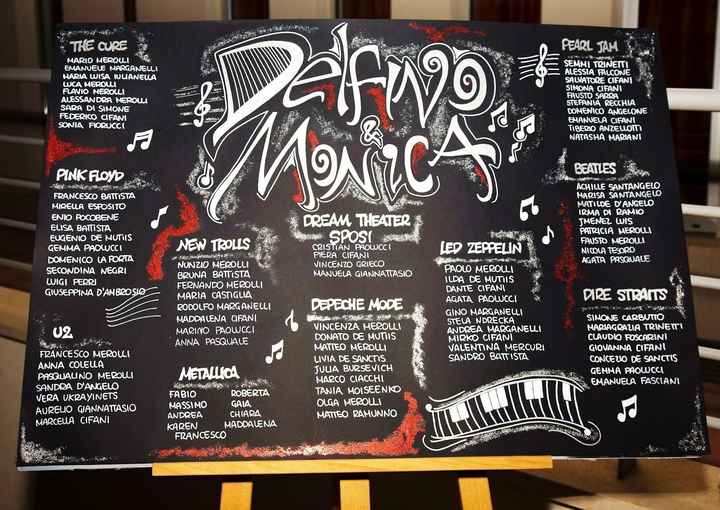 Delfino
&
Monica
THE CURE
MARIO MEROLLI
EMANUELE MARGANELLI
MARIA LUISA IULIANELLA
LUCA MEROLLI
FLAVIO MEROLLI
ALESSANDRA MEROLLI
SARA DI SIMONE
FEDERICO CIFANI
SONIA FIORUCCI
PINK FLOYD
FRANCESCO BATTISTA
MIRELLA ESPOSITO
ENIO POCOBENE
ELISA BATTISTA
EUGENIO DE MUTIIS
GEMMA PAOLUCCI
DOMENICO LA FORTA
SECONDINA NEGRI
LUIGI PERRI
GIUSEPPINA D'AMBROSIO
U2
FRANCESCO MEROLLI
ANNA COLELLA
PASQUALINO MEROLLI
SANDRA D'ANGELO
VERA UKRAYINETS
AURELIO GIANNATTASIO
MARCELLA CIFANI
NEW TROLLS
NUNZIO MEROLLI
BRUNA BATTISTA
FERNANDO MEROLLI
MARIA CASTIGLIA
RODOLFO MARGANELLI
MADDALENA CIFANI
MARINO PAOLUCCI
ANNA PASQUALE
METALLICA
FABIO ROBERTA
MASSIMO GAIA
ANDREA CHIARA
KAREN MADDALENA
FRANCESCO
DREAM THEATER
SPOSI
CRISTIAN PAOLUCCI
PIERA CIFANI
VINCENZO GRIECO
MANUELA GIANNATTASIO
DEPECHE MODE
VINCENZA MEROLLI
DONATO DE MUTIIS
MATTEO MEROLLI
LIVIA DE SANCTIS
JULIA BURSEVICH
MARCO CIACCHI
TANIA MOISEENKO
OLGA MEROLLI
MATTEO RAMUNNO
LED ZEPPELIN
PAOLO MEROLLI
ILDA DE MUTIIS
DANTE CIFANI
AGATA PAOLUCCI
GINO MARGANELLI
STELA NDRECKA
ANDREA MARGANELLI
MIRKO CIFANI
VALENTINA MERCURI
SANDRO BATTISTA
PEARL JAM
SEMMI TRINETTI
ALESSIA FALCONE
SALVATORE CIFANI
SIMONA CIFANI
FAUSTO SARRA
STEFANIA RECCHIA
DOMENICO ANGELONE
EMANUELA CIFANI
TIBERIO ANZELLOTTI
NATASHA MARIANI
BEATLES
ACHILLE SANTANGELO
MARISA SANTANGELO
MATILDE D'ANGELO
IRMA DI RAMIO
JMENEZ LUIS
PATRICIA MEROLLI
FAUSTO MEROLLI
NICOLA TESORO
AGATA PASQUALE
DIRE STRAITS
SIMONE CARBUTTO
MARIAGRAZIA TRINETTI
CLAUDIO FOSCARINI
GIOVANNA CIFANI
CONCEZIO DE SANCTIS
GEMMA PAOLUCCI
EMANUELA FASCIANI